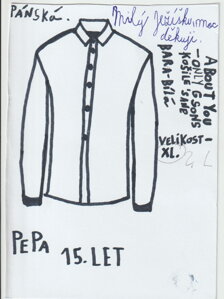 PÁNSKÁ.
Milý Ježíšku, moc
děkuji.
ABOUT YOU
-ONLY & SONS
KOŠILE SLIVE
BARA-BÍLÁ
VELIKOST-
XL.
PEPA 15.LET